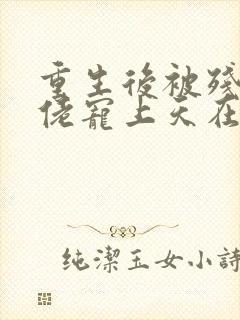 重生後被殘
佬寵上天在
纯潔玉女小詩